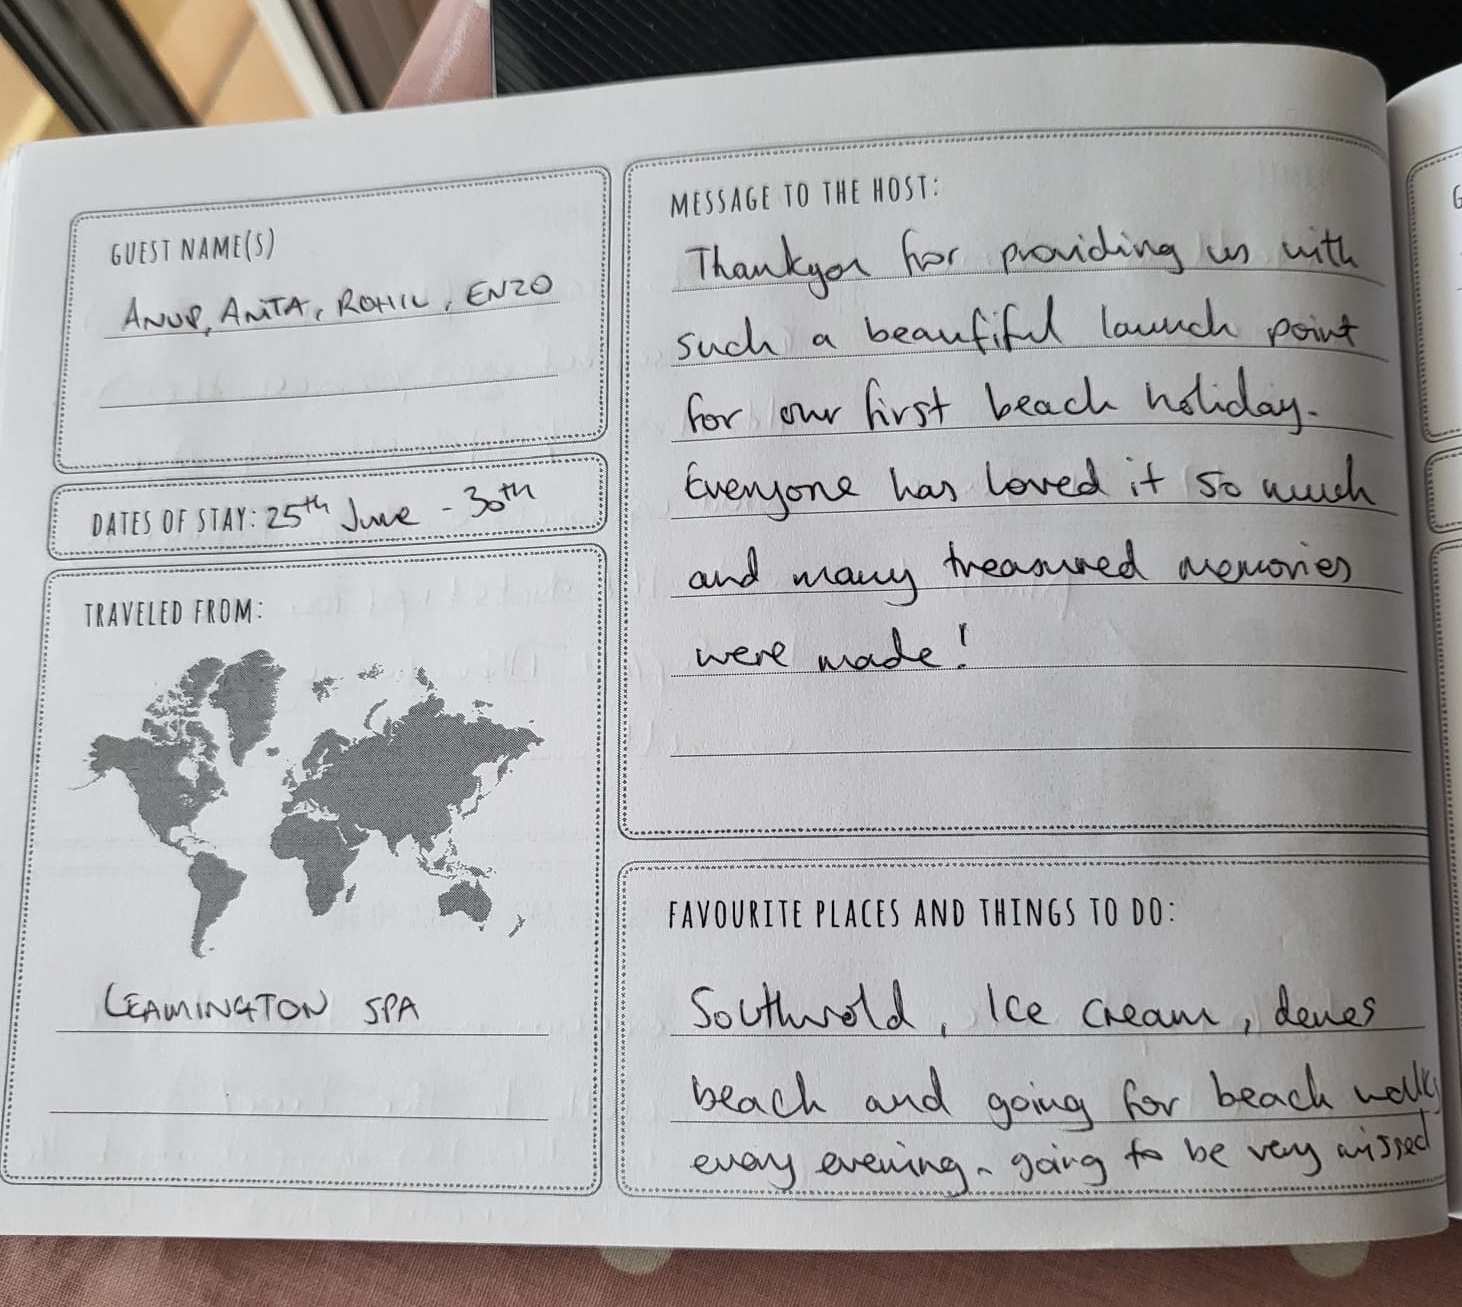 GUEST NAME(S)
ANUP, ANITA, ROHIL, ENZO
DATES OF STAY: 25th June - 30th
TRAVELED FROM:
LEAMINGTON SPA
MESSAGE TO THE HOST:
Thankyou for providing us with
such a beautiful launch point
for our first beach holiday.
Everyone has loved it so much
and many treasured memories
were made!
FAVOURITE PLACES AND THINGS TO DO:
Southwold, Ice cream, denes
beach and going for beach walks
every evening - going to be very missed
G